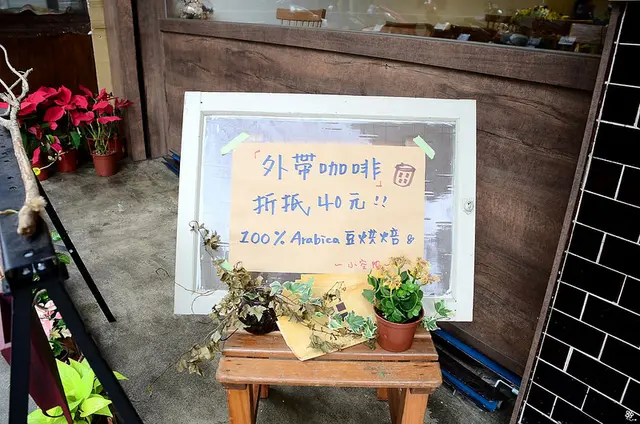 「外帶咖啡」
折抵40元!!
100% Arabica 豆烘焙